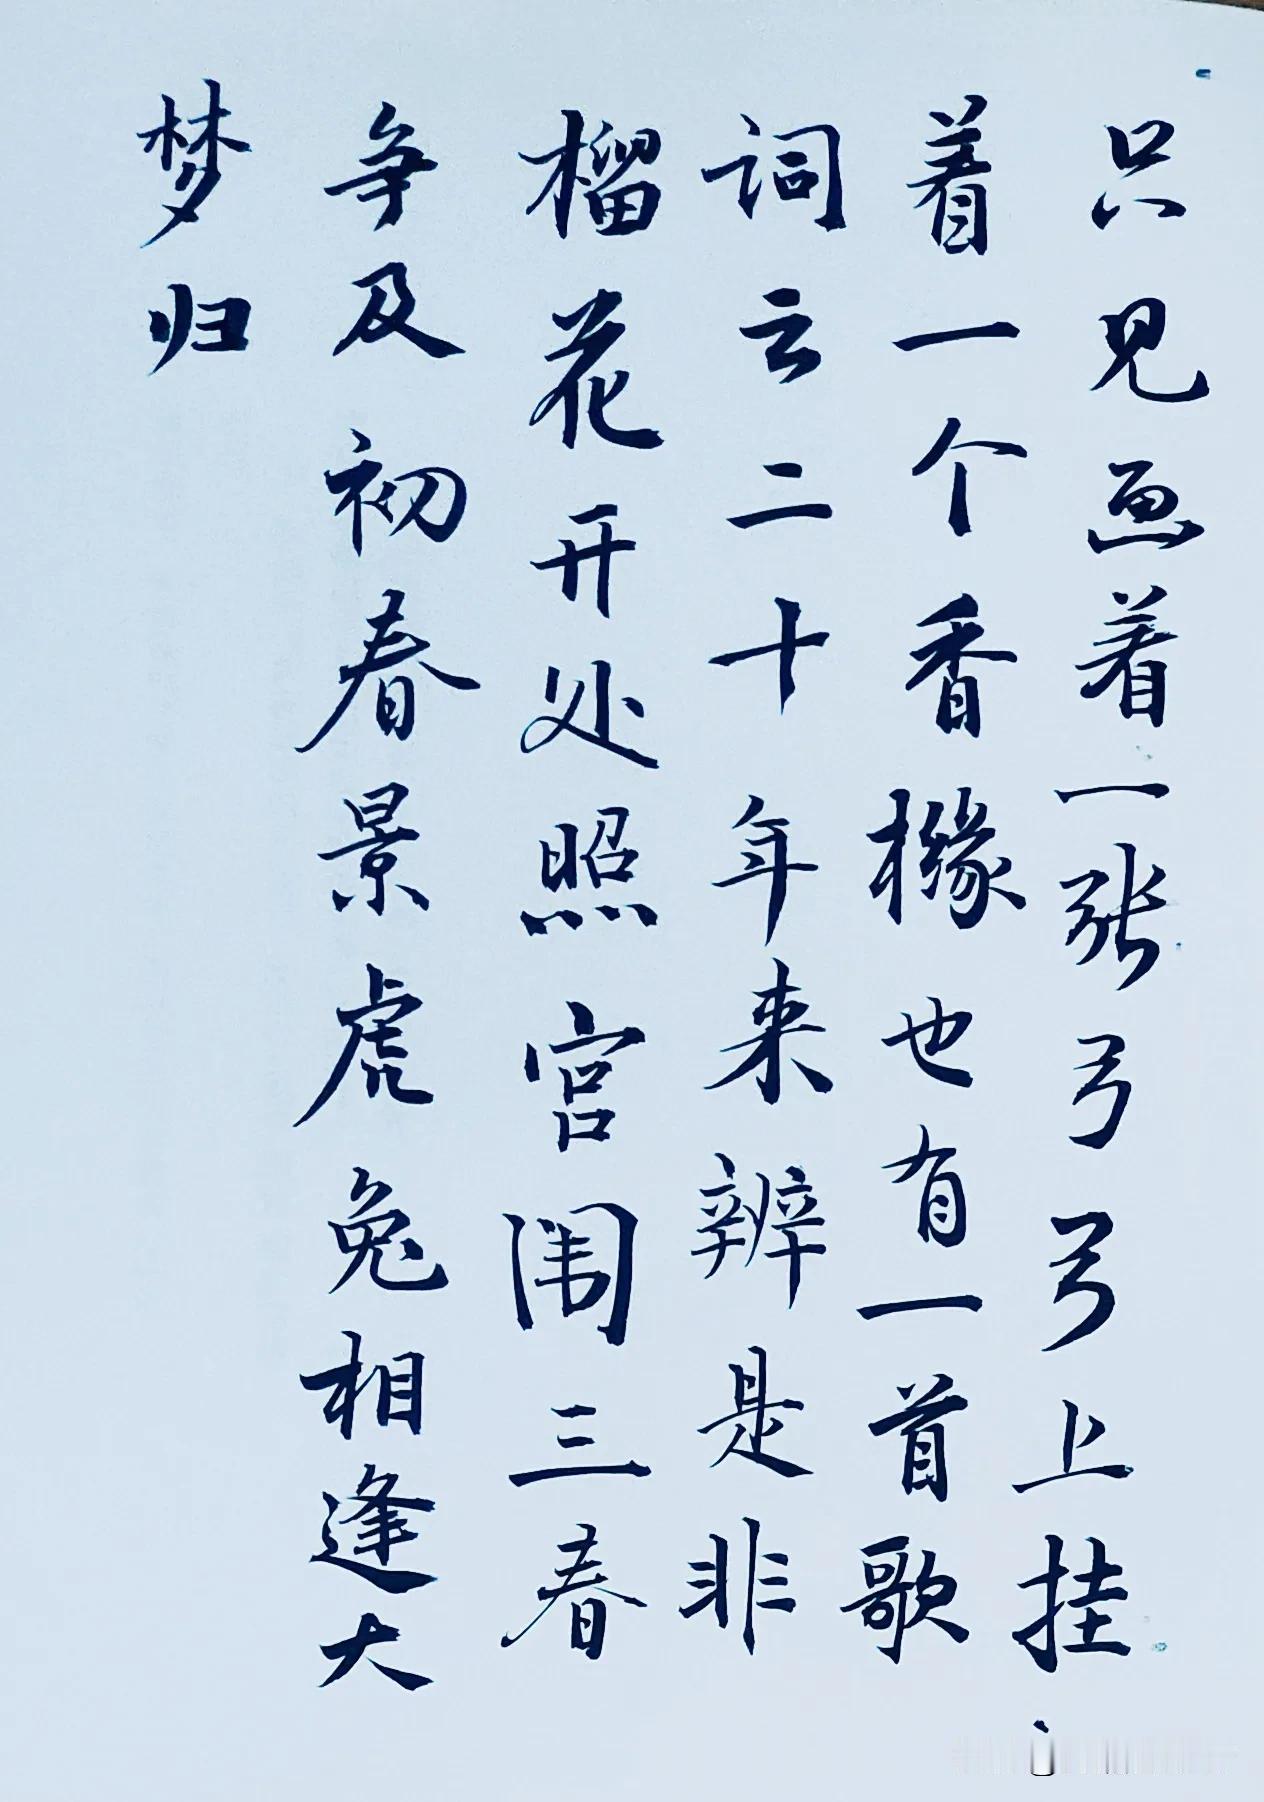 只见画着一张弓弓上挂
着一个香橼也有一首歌
词云二十年来辨是非
榴花开处照宫闱三春
争及初春景虎兔相逢大
梦归